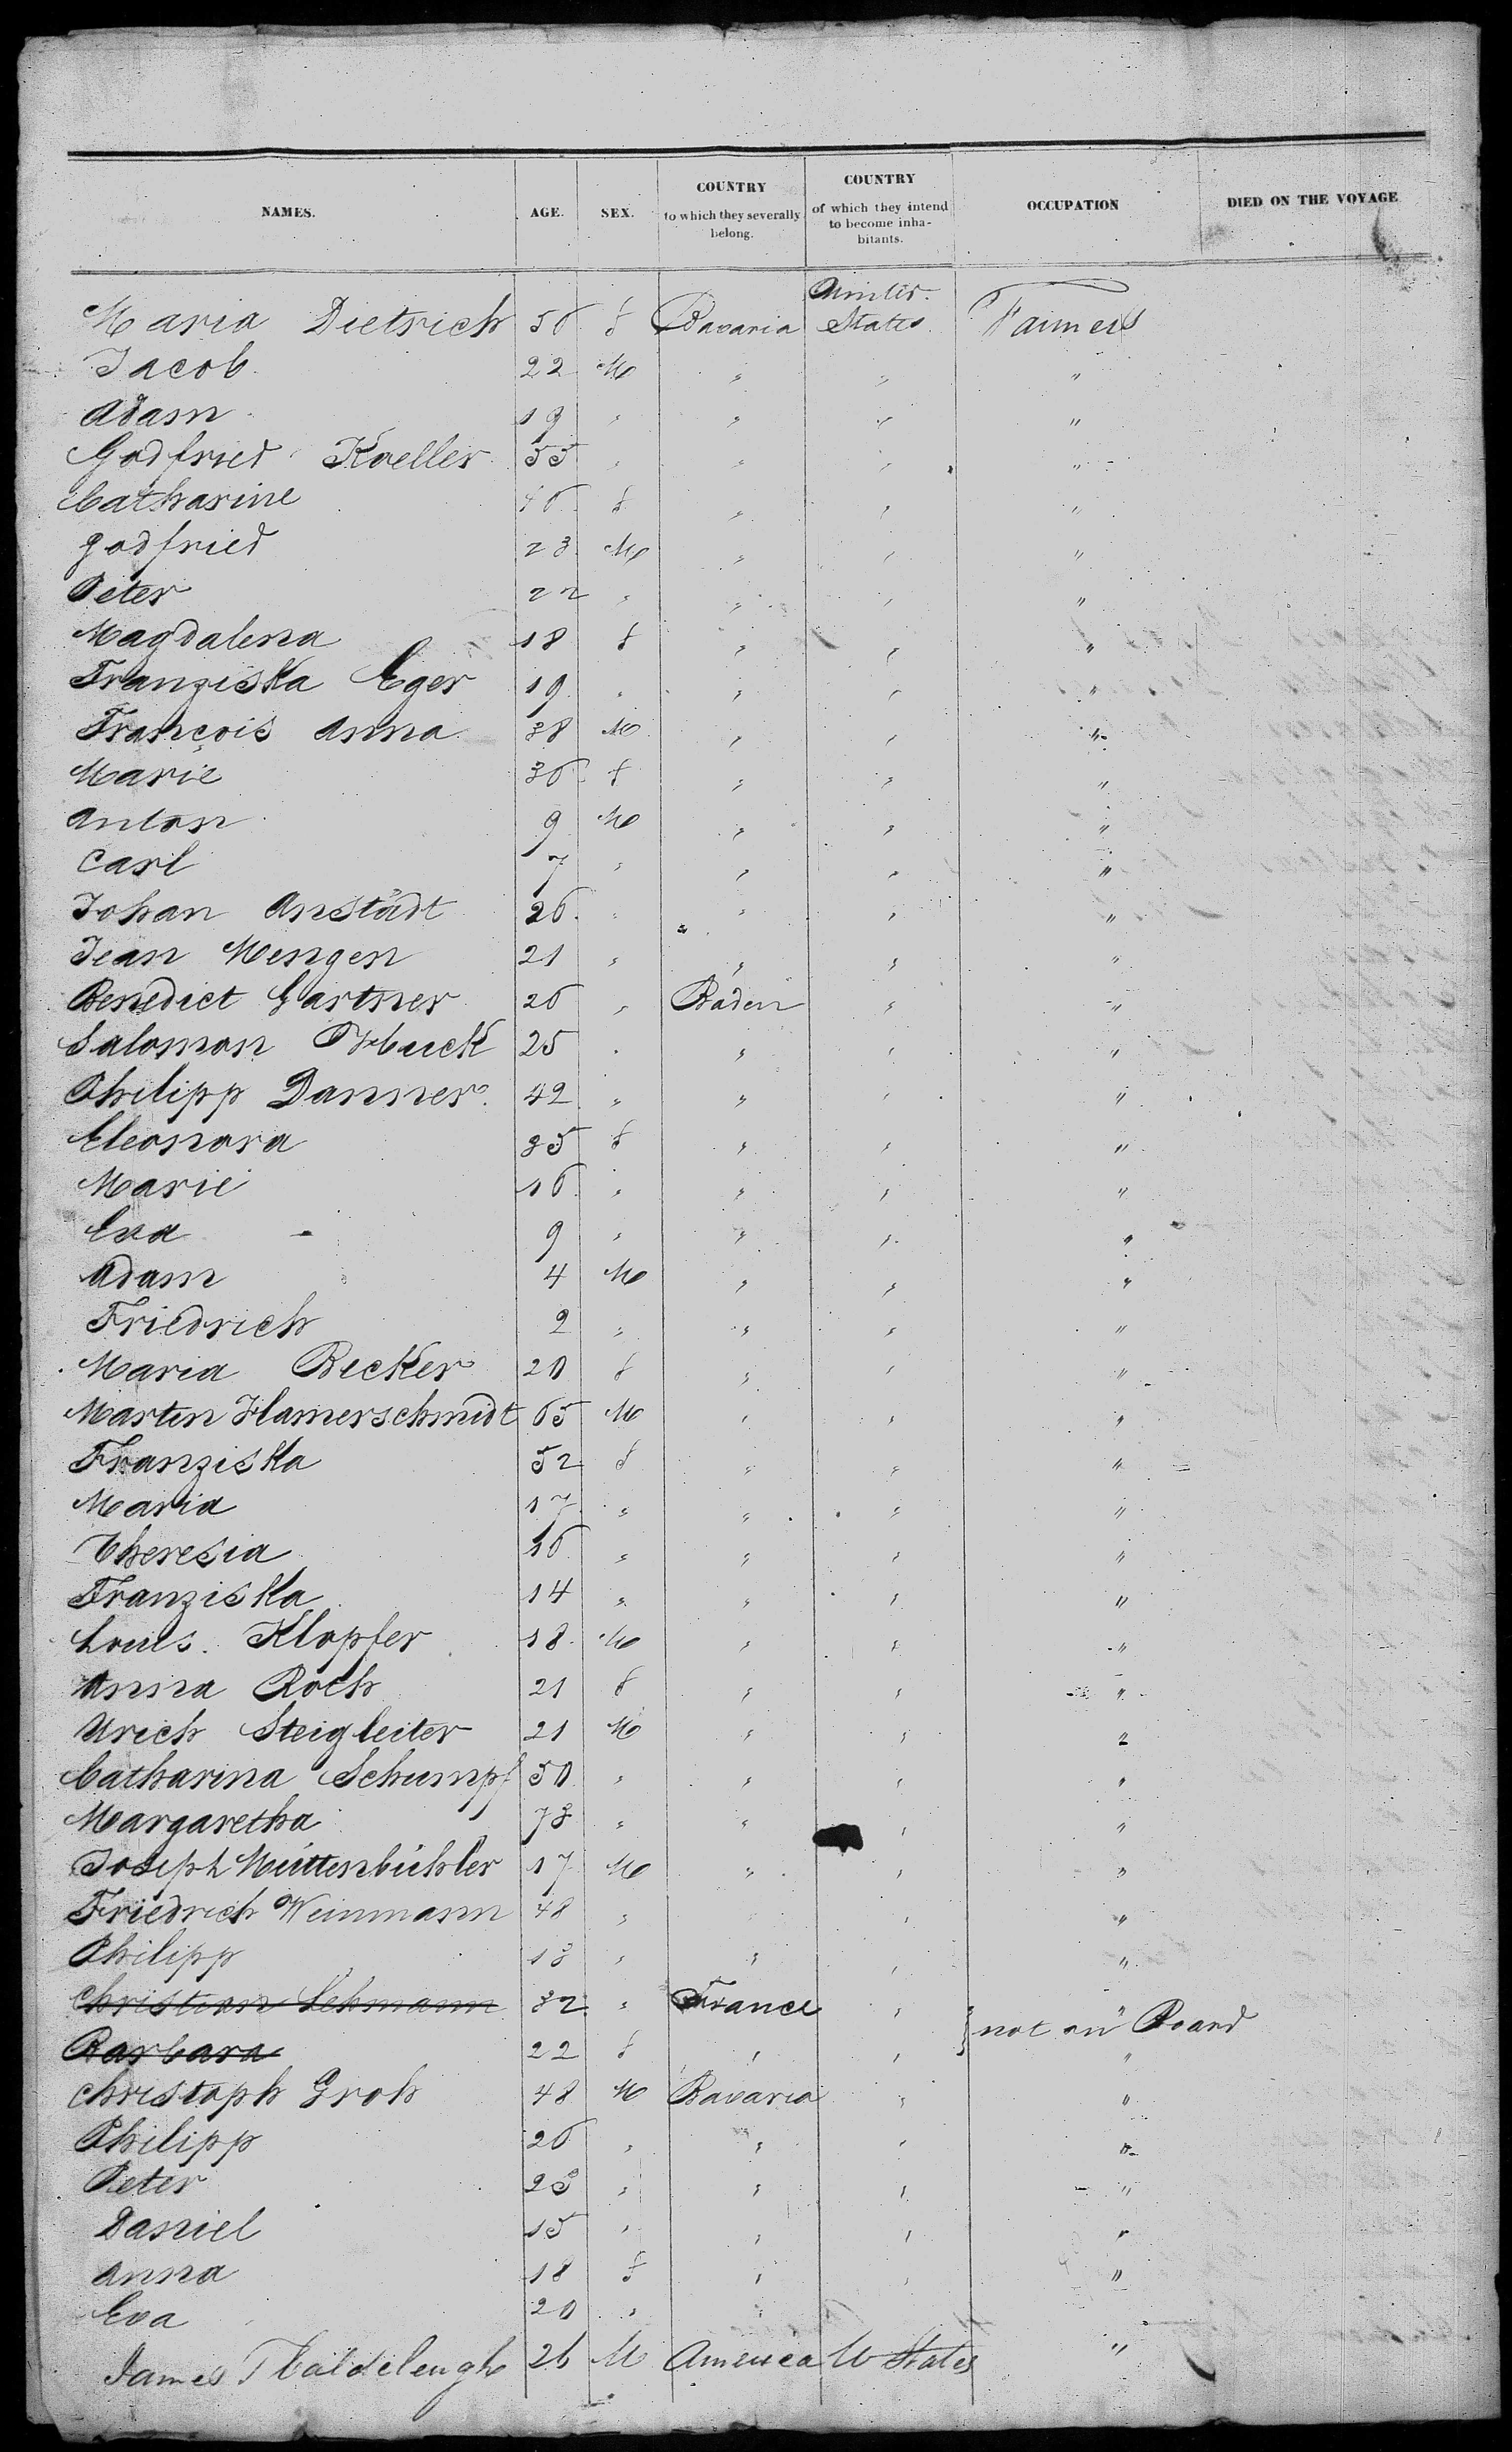 NAMES. AGE. SEX. COUNTRY to which they severally belong. COUNTRY of which they intend to become inha-bitants. OCCUPATION DIED ON THE VOYAGE
Maria Dietrich 56 f Bavaria United States Farmers
Jacob 22 M " " "
Adam 19 " " " "
Godfried Koeller 55 " " " "
Catharine 46 f " " "
Godfried 23 M " " "
Peter 22 " " " "
Magdalena 18 f " " "
Franziska Eger 19 " " " "
François Anna 38 M " " "
Marie 36 f " " "
Anton 9 M " " "
Carl 7 " " " "
Johan Anstädt 26 " " " "
Jean Mengen 21 " " " "
Benedict Gartner 26 " Baden " "
Salomon Huck 25 " " " "
Philipp Danner 42 " " " "
Eleonora 35 f " " "
Marie 16 " " " "
Eva 9 " " " "
Adam 4 M " " "
Friedrich 2 " " " "
Maria Becker 20 f " " "
Martin Hamerschmidt 65 M " " "
Franziska 52 f " " "
Maria 17 " " " "
Theresia 16 " " " "
Franziska 14 " " " "
Louis Klopfer 18 M " " "
Anna Roth 21 f " " "
Urich Steigleiter 21 M " " "
Catharina Schumpf 50 " " " "
Margaretha 73 " " " "
Joseph Müttenbühler 17 M " " "
Friedrich Weinmann 48 " " "
Philipp 13 " " " "
Christian Lehmann 32 " France " "
not on Board
Barbara 22 f " " "
Christoph Groh 48 M Bavaria " "
Philipp 26 " " " "
Peter 23 " " " "
Daniel 15 " " " "
Anna 18 f " " "
Eva 20 " "
James 26 M America U States "